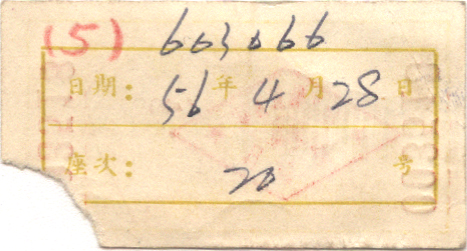 (5) 603066
日期: 56年4月28日
座次: 20号